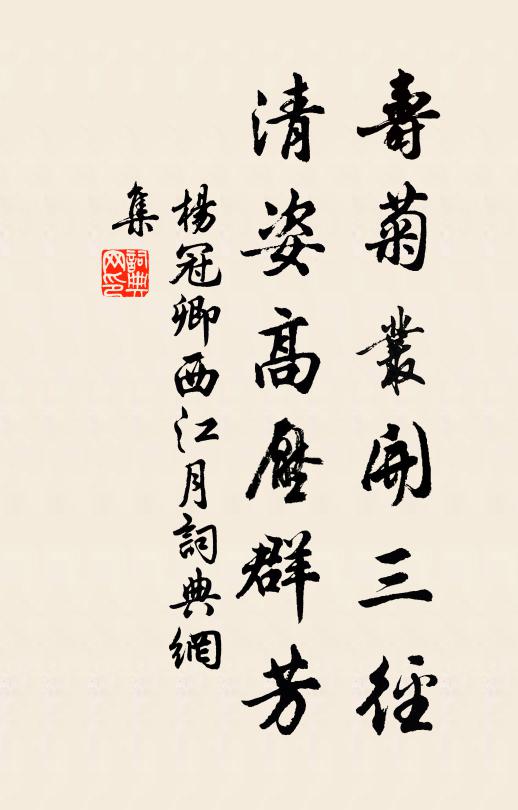 壽菊叢開三徑
清姿高壓群芳
楊冠卿西江月詞典網
集
詞典網印